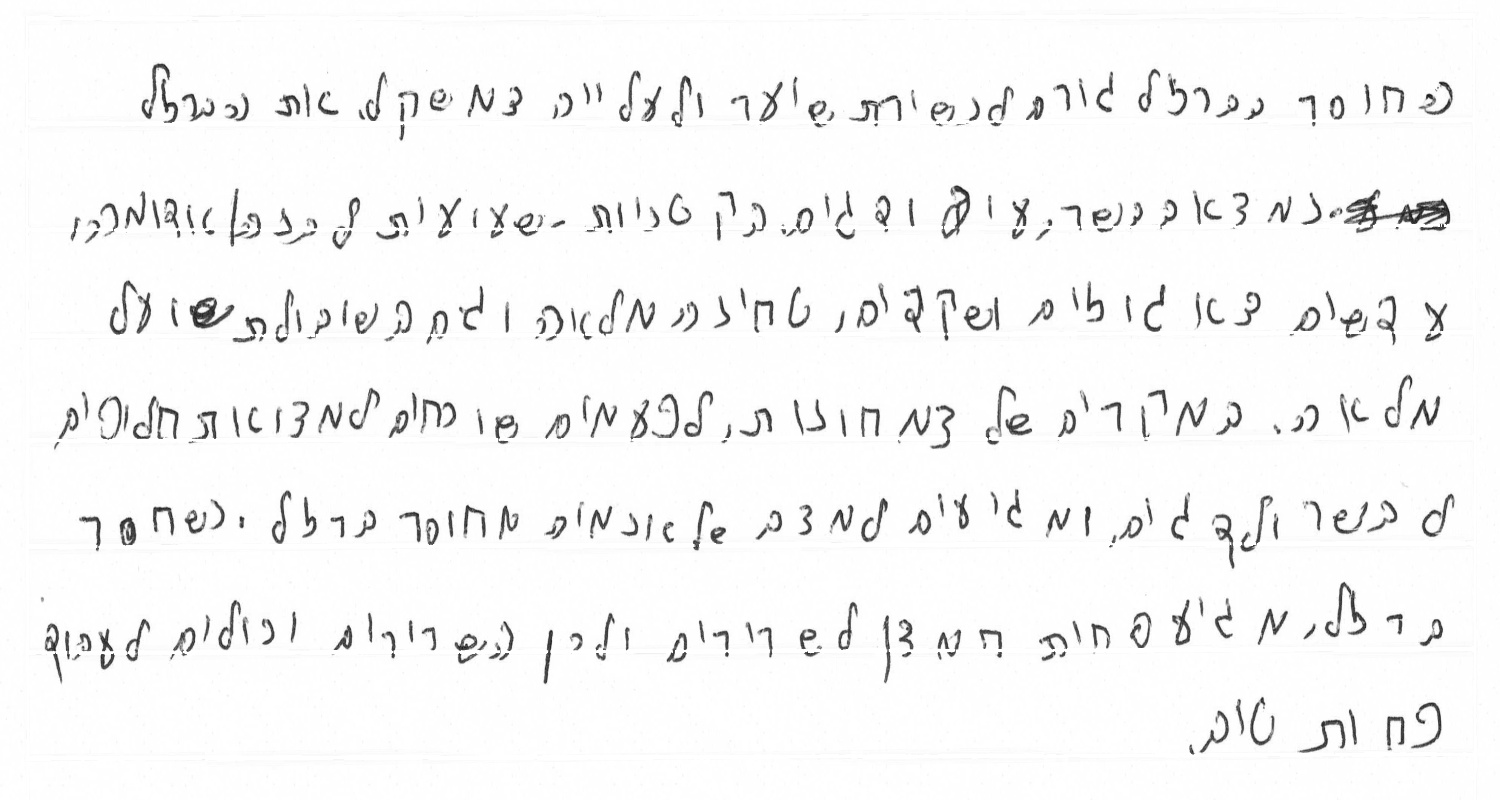 החוסר בברזל גורם לנשירת שיער ולעלייה במשקל. את הברזל
נמצא בבשר, עוף ודגים. בקטניות - שעועית לבנה/אדומה,
עדשים באגוזים ושקדים, טחינה מלאה וגם בשיבולת שועל
מלאה. במקרים של צמחונות, לפעמים שוכחים למצוא תחליפים
לבשר ולדגים, ומגיעים למצב של אנמיה מחוסר ברזל. כשחסר
ברזל, מגיע פחות חמצן לשרירים ולכן השרירים יכולים לעבוד
פחות טוב.